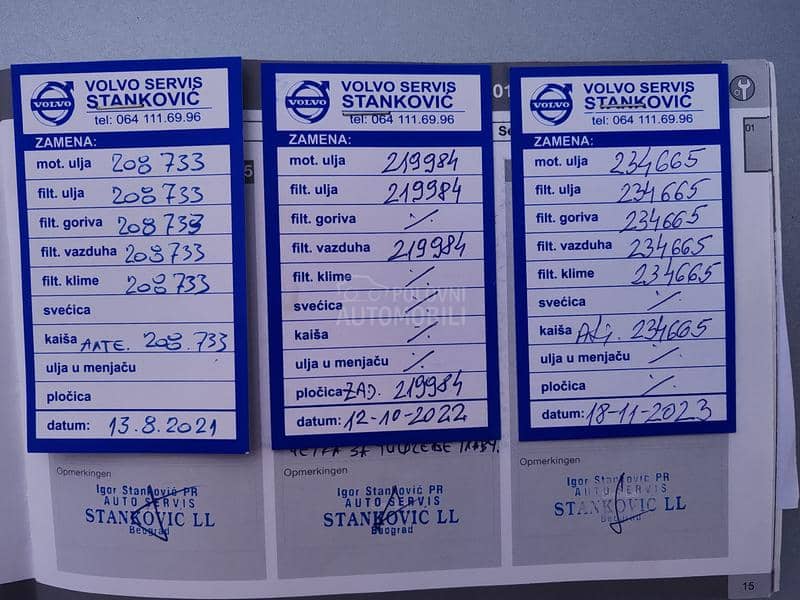 VOLVO SERVIS
STANKOVIĆ
tel: 064 111.69.96
VOLVO
ZAMENA:
mot. ulja 208 733
filt. ulja 208 733
filt. goriva 208 733
filt. vazduha 208 733
filt. klime 208 733
svećica
kaiša ALTE. 208.733
ulja u menjaču
pločica
datum: 13.8.2021
Opmerkingen
Igor Stanković PR
AUTO SERVIS
STANKOVIC LL
Beograd
VOLVO SERVIS
STANKOVIĆ
tel: 064 111.69.96
VOLVO
ZAMENA:
mot. ulja 219984
filt. ulja 219984
filt. goriva ·/·
filt. vazduha 219984
filt. klime ·/·
svećica ·/·
kaiša ·/·
ulja u menjaču ·/·
pločica ZAD. 219984
datum: 12-10-2022
POLOVNI
AUTOMOBILI
Opmerkingen
Igor Stanković PR
AUTO SERVIS
STANKOVIC LL
Beograd
01
VOLVO SERVIS
STANKOVIĆ
tel: 064 111.69.96
VOLVO
ZAMENA:
mot. ulja 234665
filt. ulja 234665
filt. goriva 234665
filt. vazduha 234665
filt. klime 234665
svećica ·/·
kaiša ALT. 234665
ulja u menjaču ·/·
pločica ·/·
datum: 18-11-2023
Opmerkingen
Igor Stanković PR
AUTO SERVIS
STANKOVIC LL
Beograd
01
15